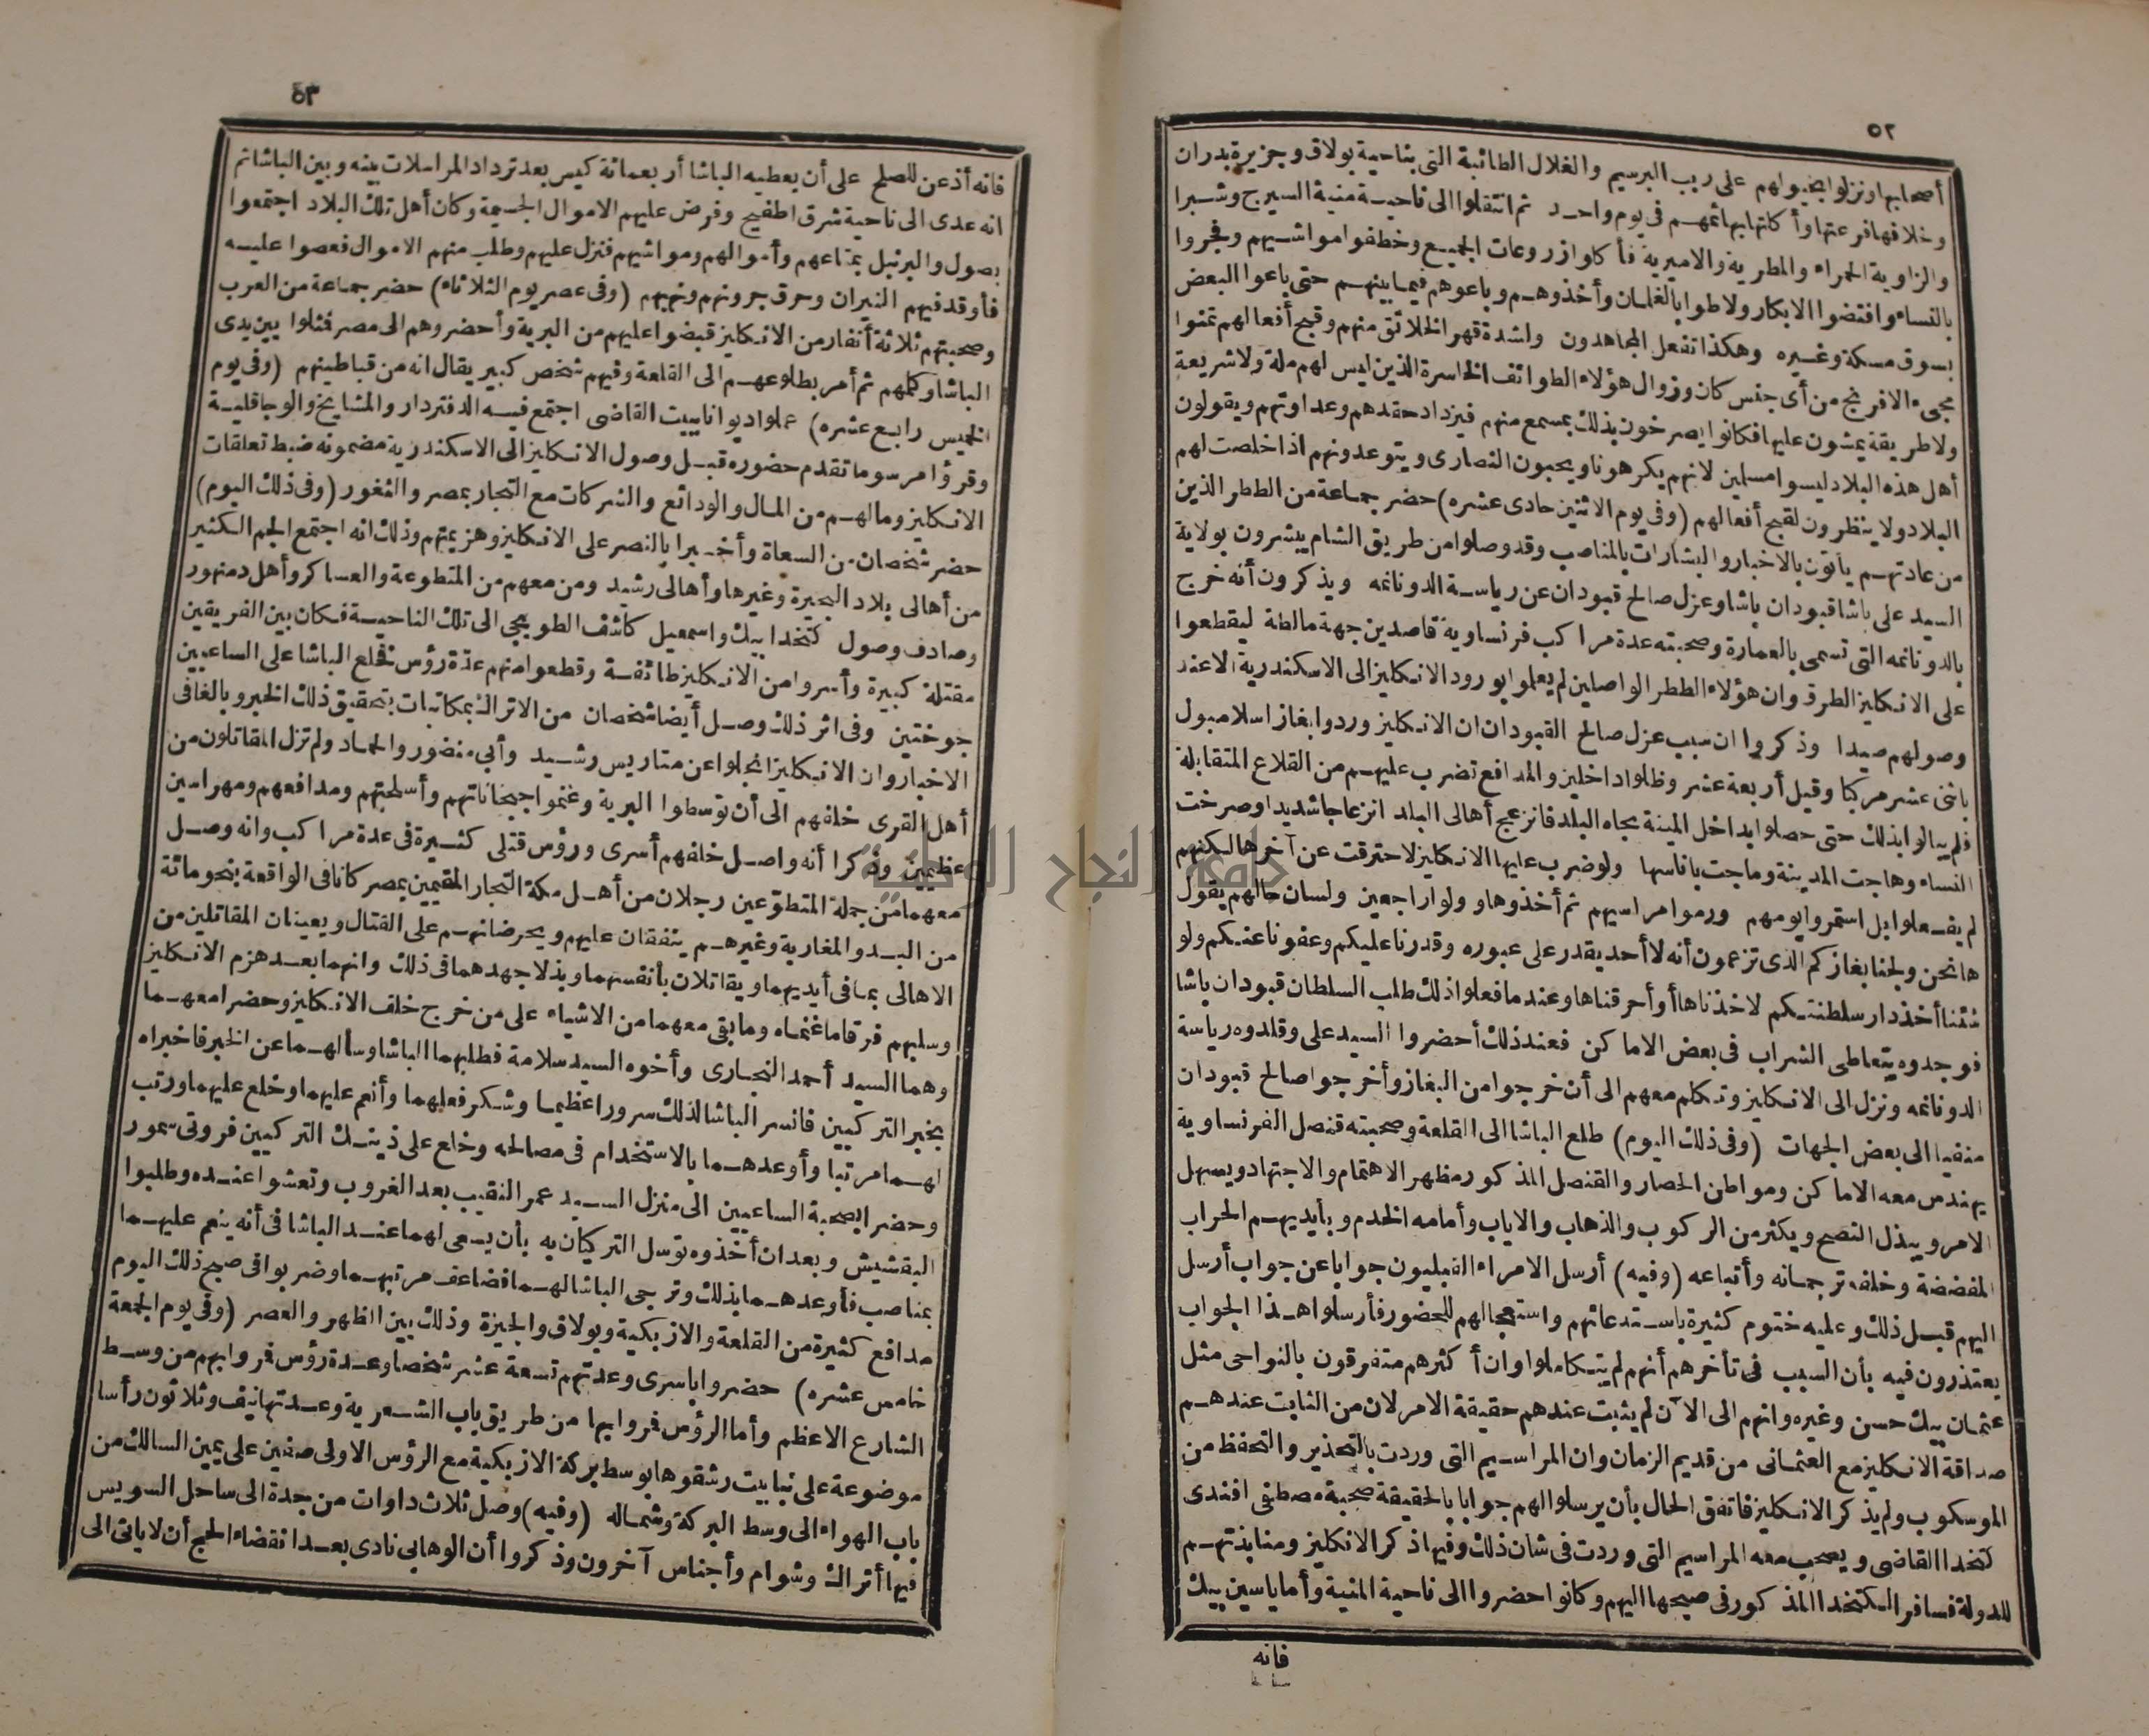 ٥٢
أصحابها ونزلوا بخيولهم على ريب البرسيم والغلال الطائبة التى بناحية بولاق وجزيرة بدران
وخلافها فرعتها وأكلتها بهائمهم فى يوم واحد ثم انتقلوا الى ناحية منية السيرج وشبرا
والزاوية الحمراء والمطرية والاميرية فأكلوا زروعات الجميع وخطفوا مواشيهم وفجروا
بالنساء وافتضوا الابكار ولاطوا بالغلمان وأخذوهم وباعوهم فيما بينهم حتى باعوا البعض
بسوق مسكة وغيره وهكذا تفعل المجاهدون ولشدة قهر الخلائق منهم وقبح أفعالهم تمنوا
مجىء الافرنج من أى جنس كان وزوال هؤلاء الطوائف الخاسرة الذين ليس لهم ملة ولا شريعة
ولا طريقة يمشون عليها فكانوا يصرخون بذلك بمسمع منهم فيزداد حقدهم وعداوتهم ويقولون
أهل هذه البلاد ليسوا مسلمين لانهم يكرهونا ويحبون النصارى ويتوعدونهم اذا خلصت لهم
البلاد ولا ينظرون لقبح أفعالهم (وفى يوم الاثنين حادى عشره) حضر جماعة من الططر الذين
من عادتهم يأتون بالاخبار والبشارات بالمناصب وقد وصلوا من طريق الشام يبشرون بولاية
السيد على باشا قبودان باشا وعزل صالح قبودان عن رياسة الدونانمه ويذكرون أنه خرج
بالدونانمه التى تسمى بالعمارة وصحبته عدة مراكب فرنساوية قاصدين جهة مالطة ليقطعوا
على الانكليز الطرق وان هؤلاء الططر الواصلين لم يعلموا بورود الانكليز الى الاسكندرية الا عند
وصولهم صيدا وذكروا ان سبب عزل صالح القبودان ان الانكليز وردوا بغاز اسلامبول
باثنى عشر مركبا وقيل أربعة عشر وظلوا داخلين والمدافع تضرب عليهم من القلاع المتقابلة
فلم يبالوا بذلك حتى حصلوا بداخل المينة تجاه البلد فانزعج أهالى البلد انزعاجا شديدا وصرخت
النساء وهاجت المدينة وماجت بأناسها ولو ضرب عليها الانكليز لاحترقت عن آخرها لكنهم
لم يفعلوا بل استمروا يومهم ورموا مراسيهم ثم أخذوها وولوا راجعين ولسان حالهم يقول
ها نحن ولجنا بغازكم الذى تزعمون أنه لا أحد يقدر على عبوره وقدرنا عليكم وعفونا عنكم ولو
شئنا أخذ دار سلطنتكم لاخذناها أو أحرقناها وعندما فعلوا ذلك طلب السلطان قبودان باشا
فوجدوه يتعاطى الشراب فى بعض الاماكن فعند ذلك أحضروا السيد على وقلدوه رياسة
الدونانمه ونزل الى الانكليز وتكلم معهم الى أن خرجوا من البغاز وأخرجوا صالح قبودان
منفيا الى بعض الجهات (وفى ذلك اليوم) طلع الباشا الى القلعة وصحبته قنصل الفرنساوية
يهندس معه الاماكن ومواطن الحصار والقنصل المذكور مظهر الاهتمام والاجتهاد ويسهل
الامر ويبذل النصح ويكثر من الركوب والذهاب والاياب وأمامه الخدم وبأيديهم الحراب
المفضضة وخلفه ترجمانه وأتباعه (وفيه) أرسل الامراء القبليون جوابا عن جواب أرسل
اليهم قبل ذلك وعليه ختوم كثيرة باستدعائهم واستعجالهم للحضور فأرسلوا هذا الجواب
يعتذرون فيه بأن السبب فى تأخرهم أنهم لم يتكاملوا وان أكثرهم متفرقون بالنواحى مثل
عثمان بيك حسن وغيره وانهم الى الآن لم يثبت عندهم حقيقة الامر لان من الثابت عندهم
صداقة الانكليز مع العثمانى من قديم الزمان وان المراسيم التى وردت بالتحذير والتحفظ من
الموسكوب ولم يذكر الانكليز فاتفق الحال بأن يرسلوا لهم جوابا بالحقيقة صحبة مصطفى افندى
كتخدا القاضى ويصحب معه المراسيم التى وردت فى شان ذلك وفيها ذكر الانكليز ومنابذتهم
للدولة فسافر الكتخدا المذكور فى صبحها اليهم وكانوا حضروا الى ناحية المنية وأما ياسين بيك
فانه
٥٣
فانه أذعن للصلح على أن يعطيه الباشا أربعمائة كيس بعد ترداد المراسلات بينه وبين الباشا ثم
انه عدى الى ناحية شرق اطفيح وفرض عليهم الاموال الجسيمة وكان أهل تلك البلاد اجتمعوا
بصول والبرنبل بمتاعهم وأموالهم ومواشيهم فنزل عليهم وطلب منهم الاموال فعصوا عليه
فأوقد فيهم النيران وحرق جرونهم ونهبهم (وفى عصر يوم الثلاثاء) حضر جماعة من العرب
وصحبتهم ثلاثة أنفار من الانكليز قبضوا عليهم من البرية وأحضروهم الى مصر فمثلوا بين يدى
الباشا وكلمهم ثم أمر بطلوعهم الى القلعة وفيهم شخص كبير يقال انه من قباطينهم (وفى يوم
الخميس رابع عشره) عملوا ديوانا ببيت القاضى اجتمع فيه الدفتردار والمشايخ والوجاقلية
وقرؤا مرسوما تقدم حضوره قبل وصول الانكليز الى الاسكندرية مضمونه ضبط تعلقات
الانكليز وما لهم من المال والودائع والشركات مع التجار بمصر والثغور (وفى ذلك اليوم)
حضر شخصان من السعاة وأخبرا بالنصر على الانكليز وهزيمتهم وذلك انه اجتمع الجم الكثير
من أهالى بلاد البحيرة وغيرها وأهالى رشيد ومن معهم من المتطوعة والعساكر وأهل دمنهور
وصادف وصول كتخدا بيك واسمعيل كاشف الطوبجى الى تلك الناحية فكان بين الفريقين
مقتلة كبيرة وأسروا من الانكليز طائفة وقطعوا منهم عدة رؤس فخلع الباشا على الساعيين
جوختين وفى اثر ذلك وصل أيضا شخصان من الاتراك بمكاتبات بتحقيق ذلك الخبر وبالغا فى
الاخبار وان الانكليز انجلوا عن متاريس رشيد وأبى منضور والحماد ولم تزل المقاتلون من
أهل القرى خلفهم الى أن توسطوا البرية وغنموا جبخاناتهم وأسلحتهم ومدافعهم ومهراسين
عظيمين وذكرا أنه واصل خلفهم أسرى ورؤس قتلى كثيرة فى عدة مراكب وانه وصل
معهما من جملة المتطوعين رجلان من أهل مكة التجار المقيمين بمصر كانا فى الواقعة بنحو مائة
من البدو والمغاربة وغيرهم ينفقان عليهم ويحرضانهم على القتال ويعينان المقاتلين من
الاهالى بما فى أيديهما ويقاتلان بأنفسهما وبذلا جهدهما فى ذلك وانهما بعد هزم الانكليز
وسلبهم فرقا ما غنماه وما بقى معهما من الاشياء على من خرج خلف الانكليز وحضرا معهما
وهما السيد أحمد النجارى وأخوه السيد سلامة فطلبهما الباشا وسألهما عن الخبر فاخبراه
بخبر التركيين فانسر الباشا لذلك سرورا عظيما وشكر فعلهما وأنعم عليهما وخلع عليهما ورتب
لهما مرتبا وأوعدهما بالاستخدام فى مصالحه وخلع على ذينك التركيين فروتى سمور
وحضرا بصحبة الساعيين الى منزل السيد عمر النقيب بعد الغروب وتعشوا عنده وطلبوا
البقشيش وبعد ان أخذوه توسل التركيان به بأن يسعى لهما عند الباشا فى أنه ينعم عليهما
بمناصب فأوعدهما بذلك وترجى الباشا لهما فضاعف مرتبهما وضربوا فى صبح ذلك اليوم
مدافع كثيرة من القلعة والازبكية وبولاق والجيزة وذلك بين الظهر والعصر (وفى يوم الجمعة
خامس عشره) حضروا باسرى وعدتهم تسعة عشر شخصا وعدة رؤس فروا بهم من وسط
الشارع الاعظم وأما الرؤس فروا بها من طريق باب الشعرية وعدتها نيف وثلاثون رأسا
موضوعة على نبابيت رشقوها بوسط بركة الازبكية مع الرؤس الاولى صفين على يمين السالك من
باب الهواء الى وسط البركة وشماله (وفيه) وصل ثلاث داوات من جدة الى ساحل السويس
فيها أتراك وشوام وأجناس آخرون وذكروا أن الوهابى نادى بعد انقضاء الحج أن لا يأتى الى
جامعة النجاح الوطنية